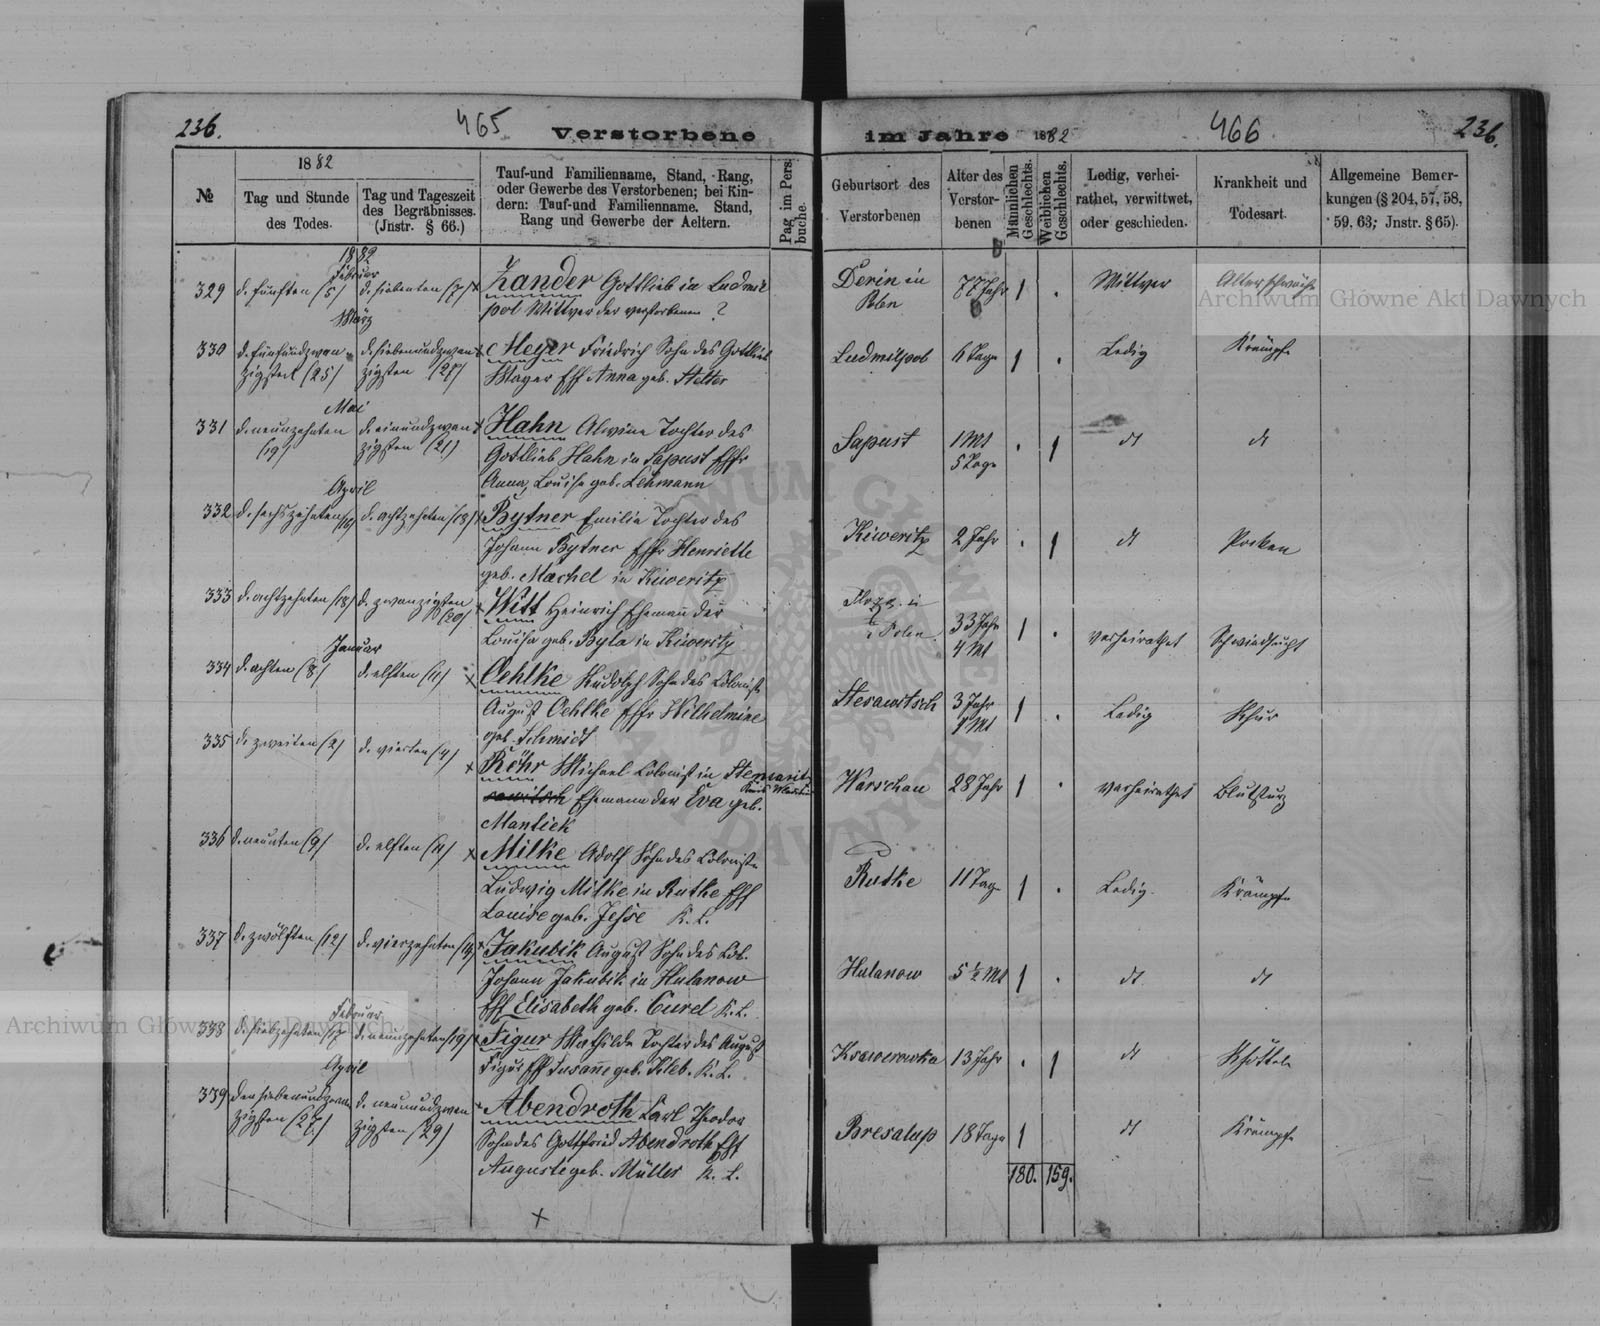 236. 465 Verstorbene im Jahre 1882 466 236.
№
1882
Tag und Stunde
des Todes.
Tag und Tageszeit
des Begräbnisses.
(Jnstr. § 66.)
Tauf-und Familienname, Stand, Rang,
oder Gewerbe des Verstorbenen; bei Kin-
dern: Tauf-und Familienname. Stand,
Rang und Gewerbe der Aeltern.
Pag. im Pers.
buche.
Geburtsort des
Verstorbenen
Alter des
Verstor-
benen
Männlichen
Geschlechts.
Weiblichen
Geschlechts.
Ledig, verhei-
rathet, verwittwet,
oder geschieden.
Krankheit und
Todesart.
Allgemeine Bemer-
kungen (§ 204, 57, 58,
59, 63; Jnstr. § 65).
1882
Februar
329 d. fünften (5) d. siebenten (7) Zander Gottlieb in Ludmil
pol Wittwer der verstorbenen ?
Derin in
Polen
77 Jahr 1 Wittwer Altersschwäche
März
330 d. fünfundzwan d. siebenundzwan Meyer Friedrich Sohn des Gottlieb
zigsten (25) zigsten (27) Mayer Eff Anna geb. Stelter
Ludmilpol 6 Tage 1 Ledig Krämpfe
Mai
331 d. neunzehnten d. einundzwan Hahn Alwine Tochter des
(19) zigsten (21) Gottlieb Hahn in Sapust Effr
Anna, Louise geb. Lehmann
Sapust 1 Mt
5 Tage
1 dt dt
April
332 d. sechszehnten (16) d. achtzehnten (18) Bytner Emilie Tochter des
Johann Bytner Effr Henriette
geb. Machel in Kiweritz
Kiweritz 2 Jahr 1 dt Pocken
333 d. achtzehnten (18) d. zwanzigsten (20) Witt Heinrich Ehemann der
Louise geb. Byla in Kiweritz
i Polen 33 Jahr
4 Mt
1 verheirathet Schwindsucht
Januar
334 d. achten (8) d. elften (11) Oehlke Rudolph Sohn des Colonist
August Oehlke Effr Wilhelmine
geb. Schmidt
3 Jahr
Mt
1 Ledig
335 d. zweiten (2) d. vierten (4) Röhr Michael Colonist in
Ehemann der Eva geb.
Mantick
Warschau 28 Jahr 1 verheirathet Blutsturz
336 d. neunten (9) d. elften (11) Milke Adolf Sohn des Coloniste
Ludwig Milke in Rutke Eff
Louise geb. Jesse K. L.
Rutke 11 Tage 1 Ledig. Krämpfe
337 d. zwölften (12) d. vierzehnten (14) Jakubik August Sohn des Col.
Johann Jakubik in Hulanow
Eff Elisabeth geb. Curel K. L.
Hulanow 5 ½ Mt 1 dt dt
Februar
338 d. siebzehnten (17) d. neunzehnten (19) Figur Mathilde Tochter des August
Figur Eff Susanne geb. K. L.
Ksawerowka 13 Jahr 1 dt
April
339 den siebenundzwan d. neunundzwan Abendroth Carl Theodor
zigsten (27) zigsten (29) Sohn des Gottfried Abendroth Eff
Auguste geb. Müller K. L.
Bresalup 18 Tage 1 dt Krämpfe
180. 159.
Archiwum Główne Akt Dawnych
Archiwum Główne Akt Dawnych
ARCHIWUM GŁÓWNE AKT DAWNYCH